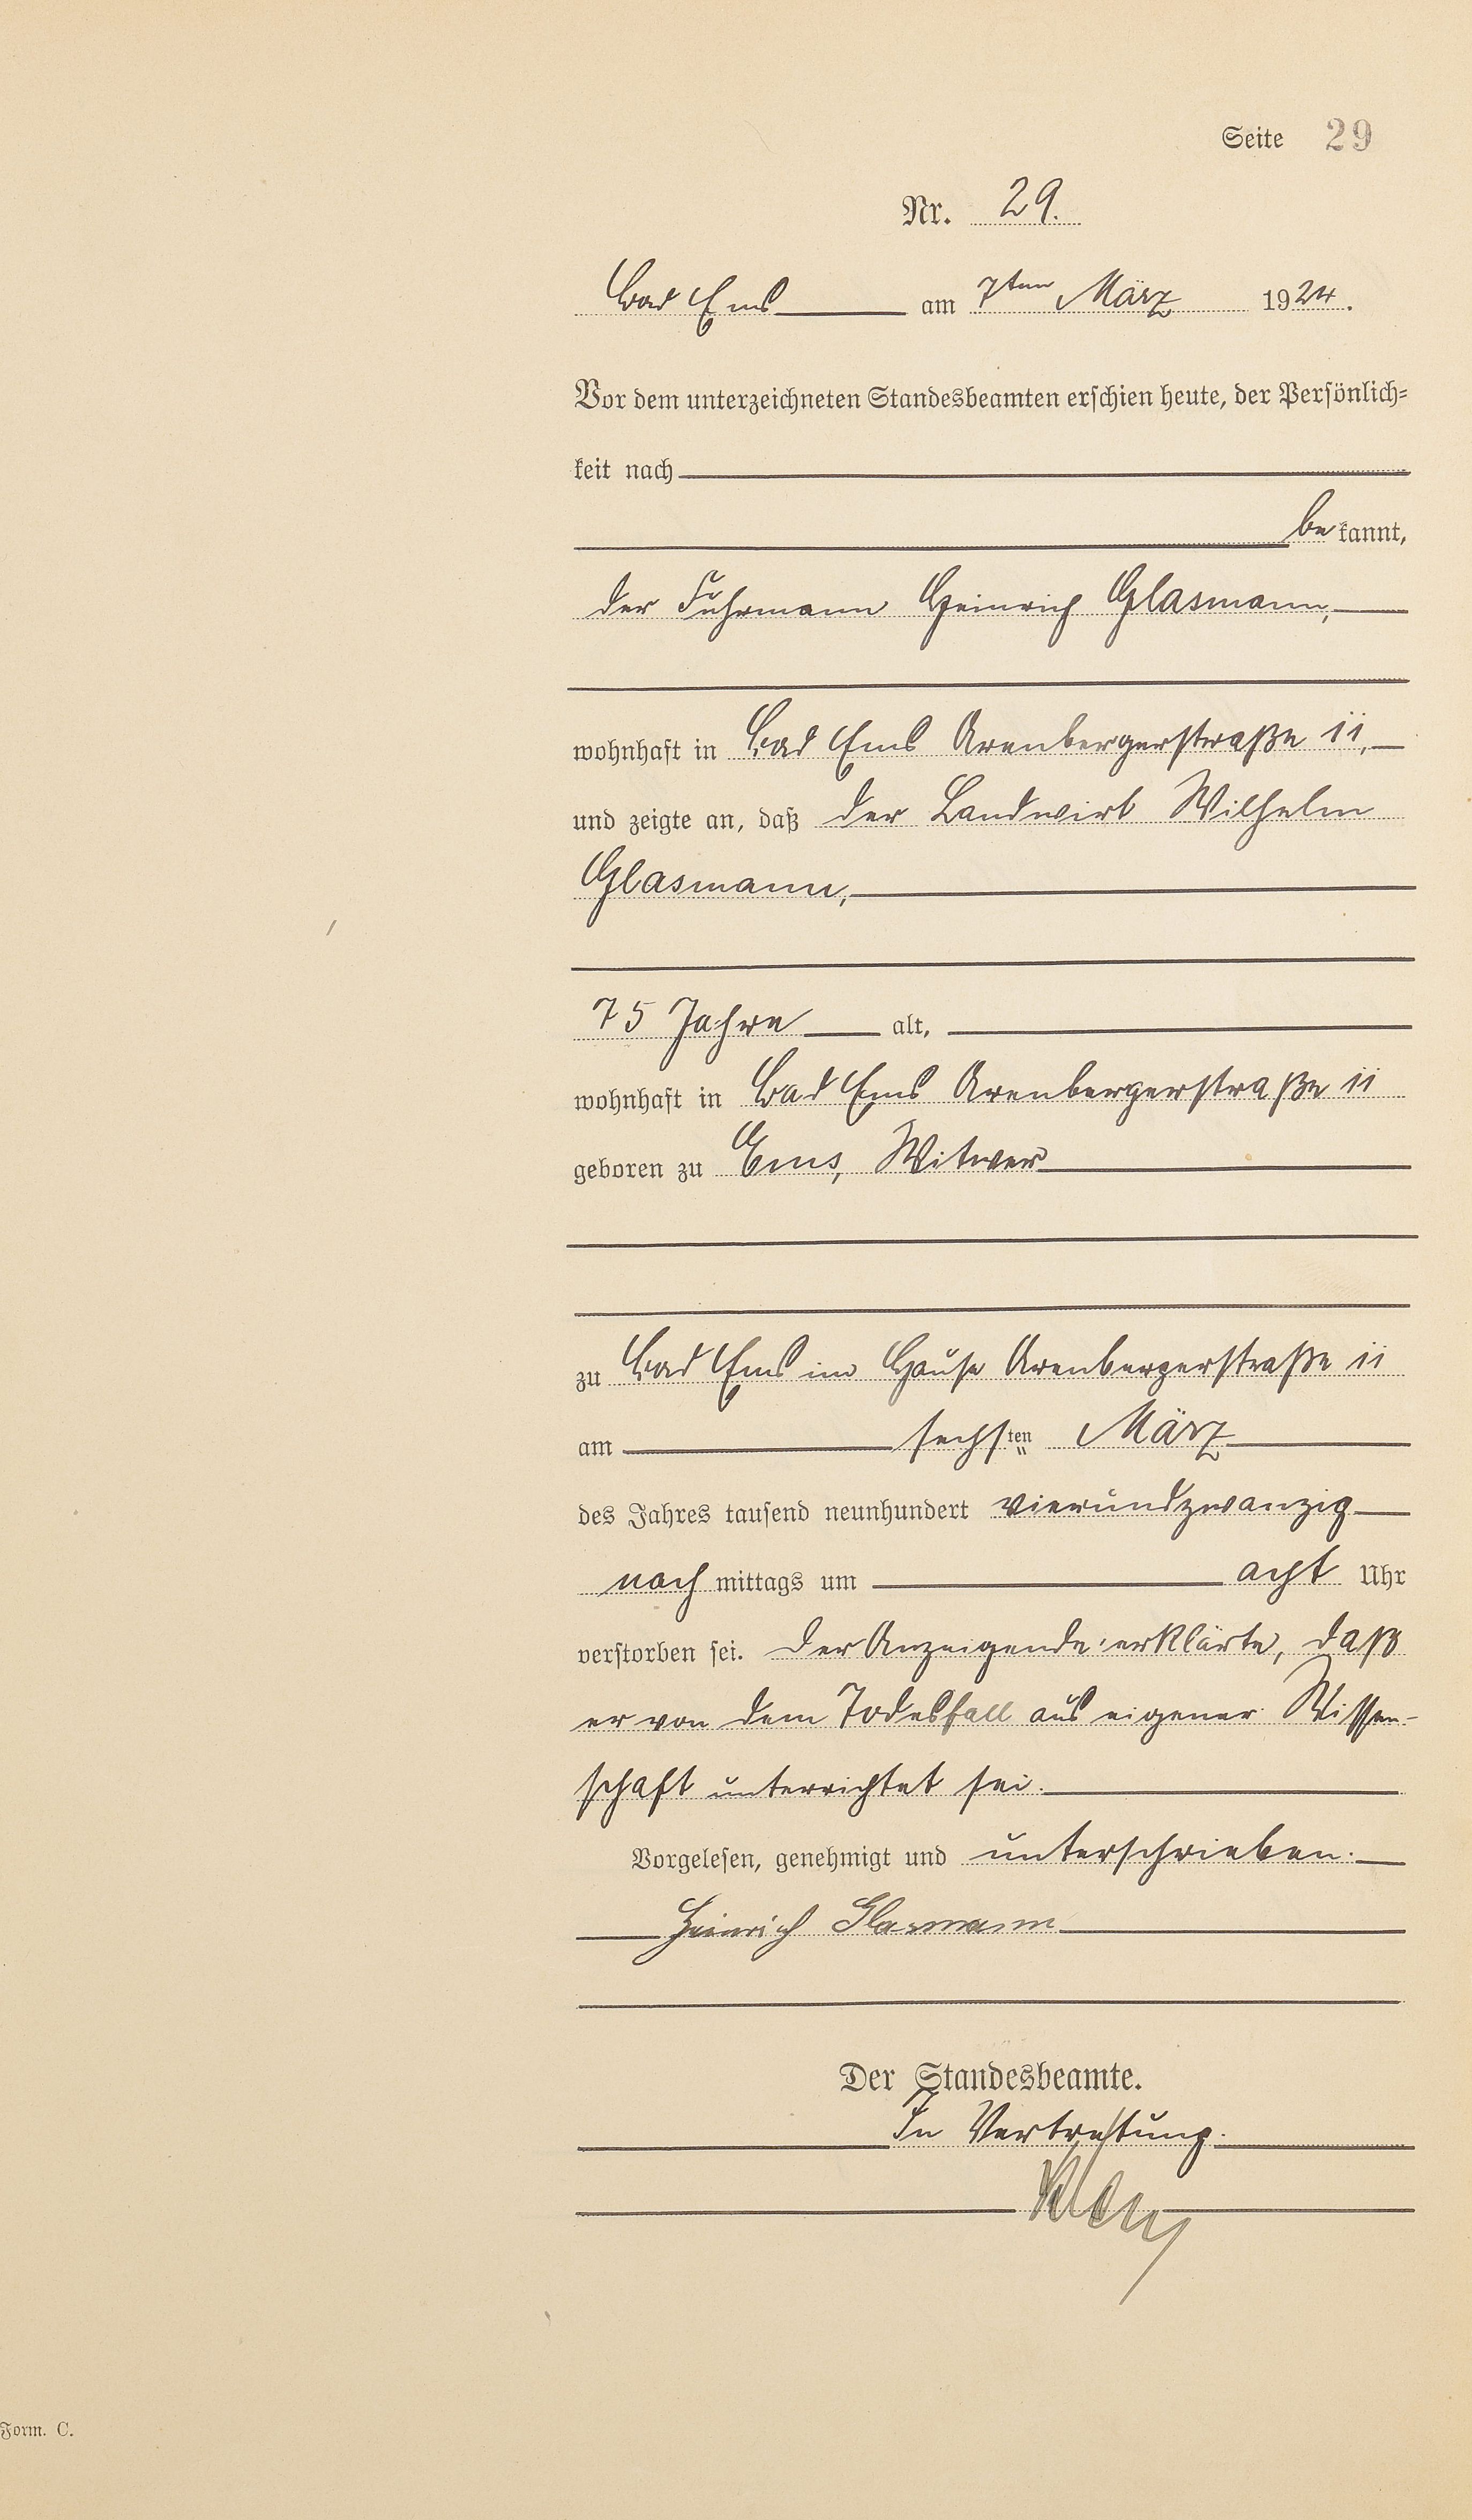 Seite 29
Nr. 29.
Bad Ems am 7ten März 1924.
Vor dem unterzeichneten Standesbeamten erschien heute, der Persönlich=
keit nach
bekannt,
der Fuhrmann Heinrich Glasmann,
wohnhaft in Bad Ems Arenbergerstraße 11,
und zeigte an, daß der Landwirt Wilhelm
Glasmann,
75 Jahre alt,
wohnhaft in Bad Ems Arenbergerstraße 11
geboren zu Ems, Witwer
zu Bad Ems im Hause Arenbergerstraße 11
am sechsten März
des Jahres tausend neunhundert vierundzwanzig
nach mittags um acht Uhr
verstorben sei. Der Anzeigende erklärte, daß
er von dem Todesfall aus eigener Wissen-
schaft unterrichtet sei.
Vorgelesen, genehmigt und unterschrieben.
Heinrich Glasmann
Der Standesbeamte.
In Vertretung.
Form. C.